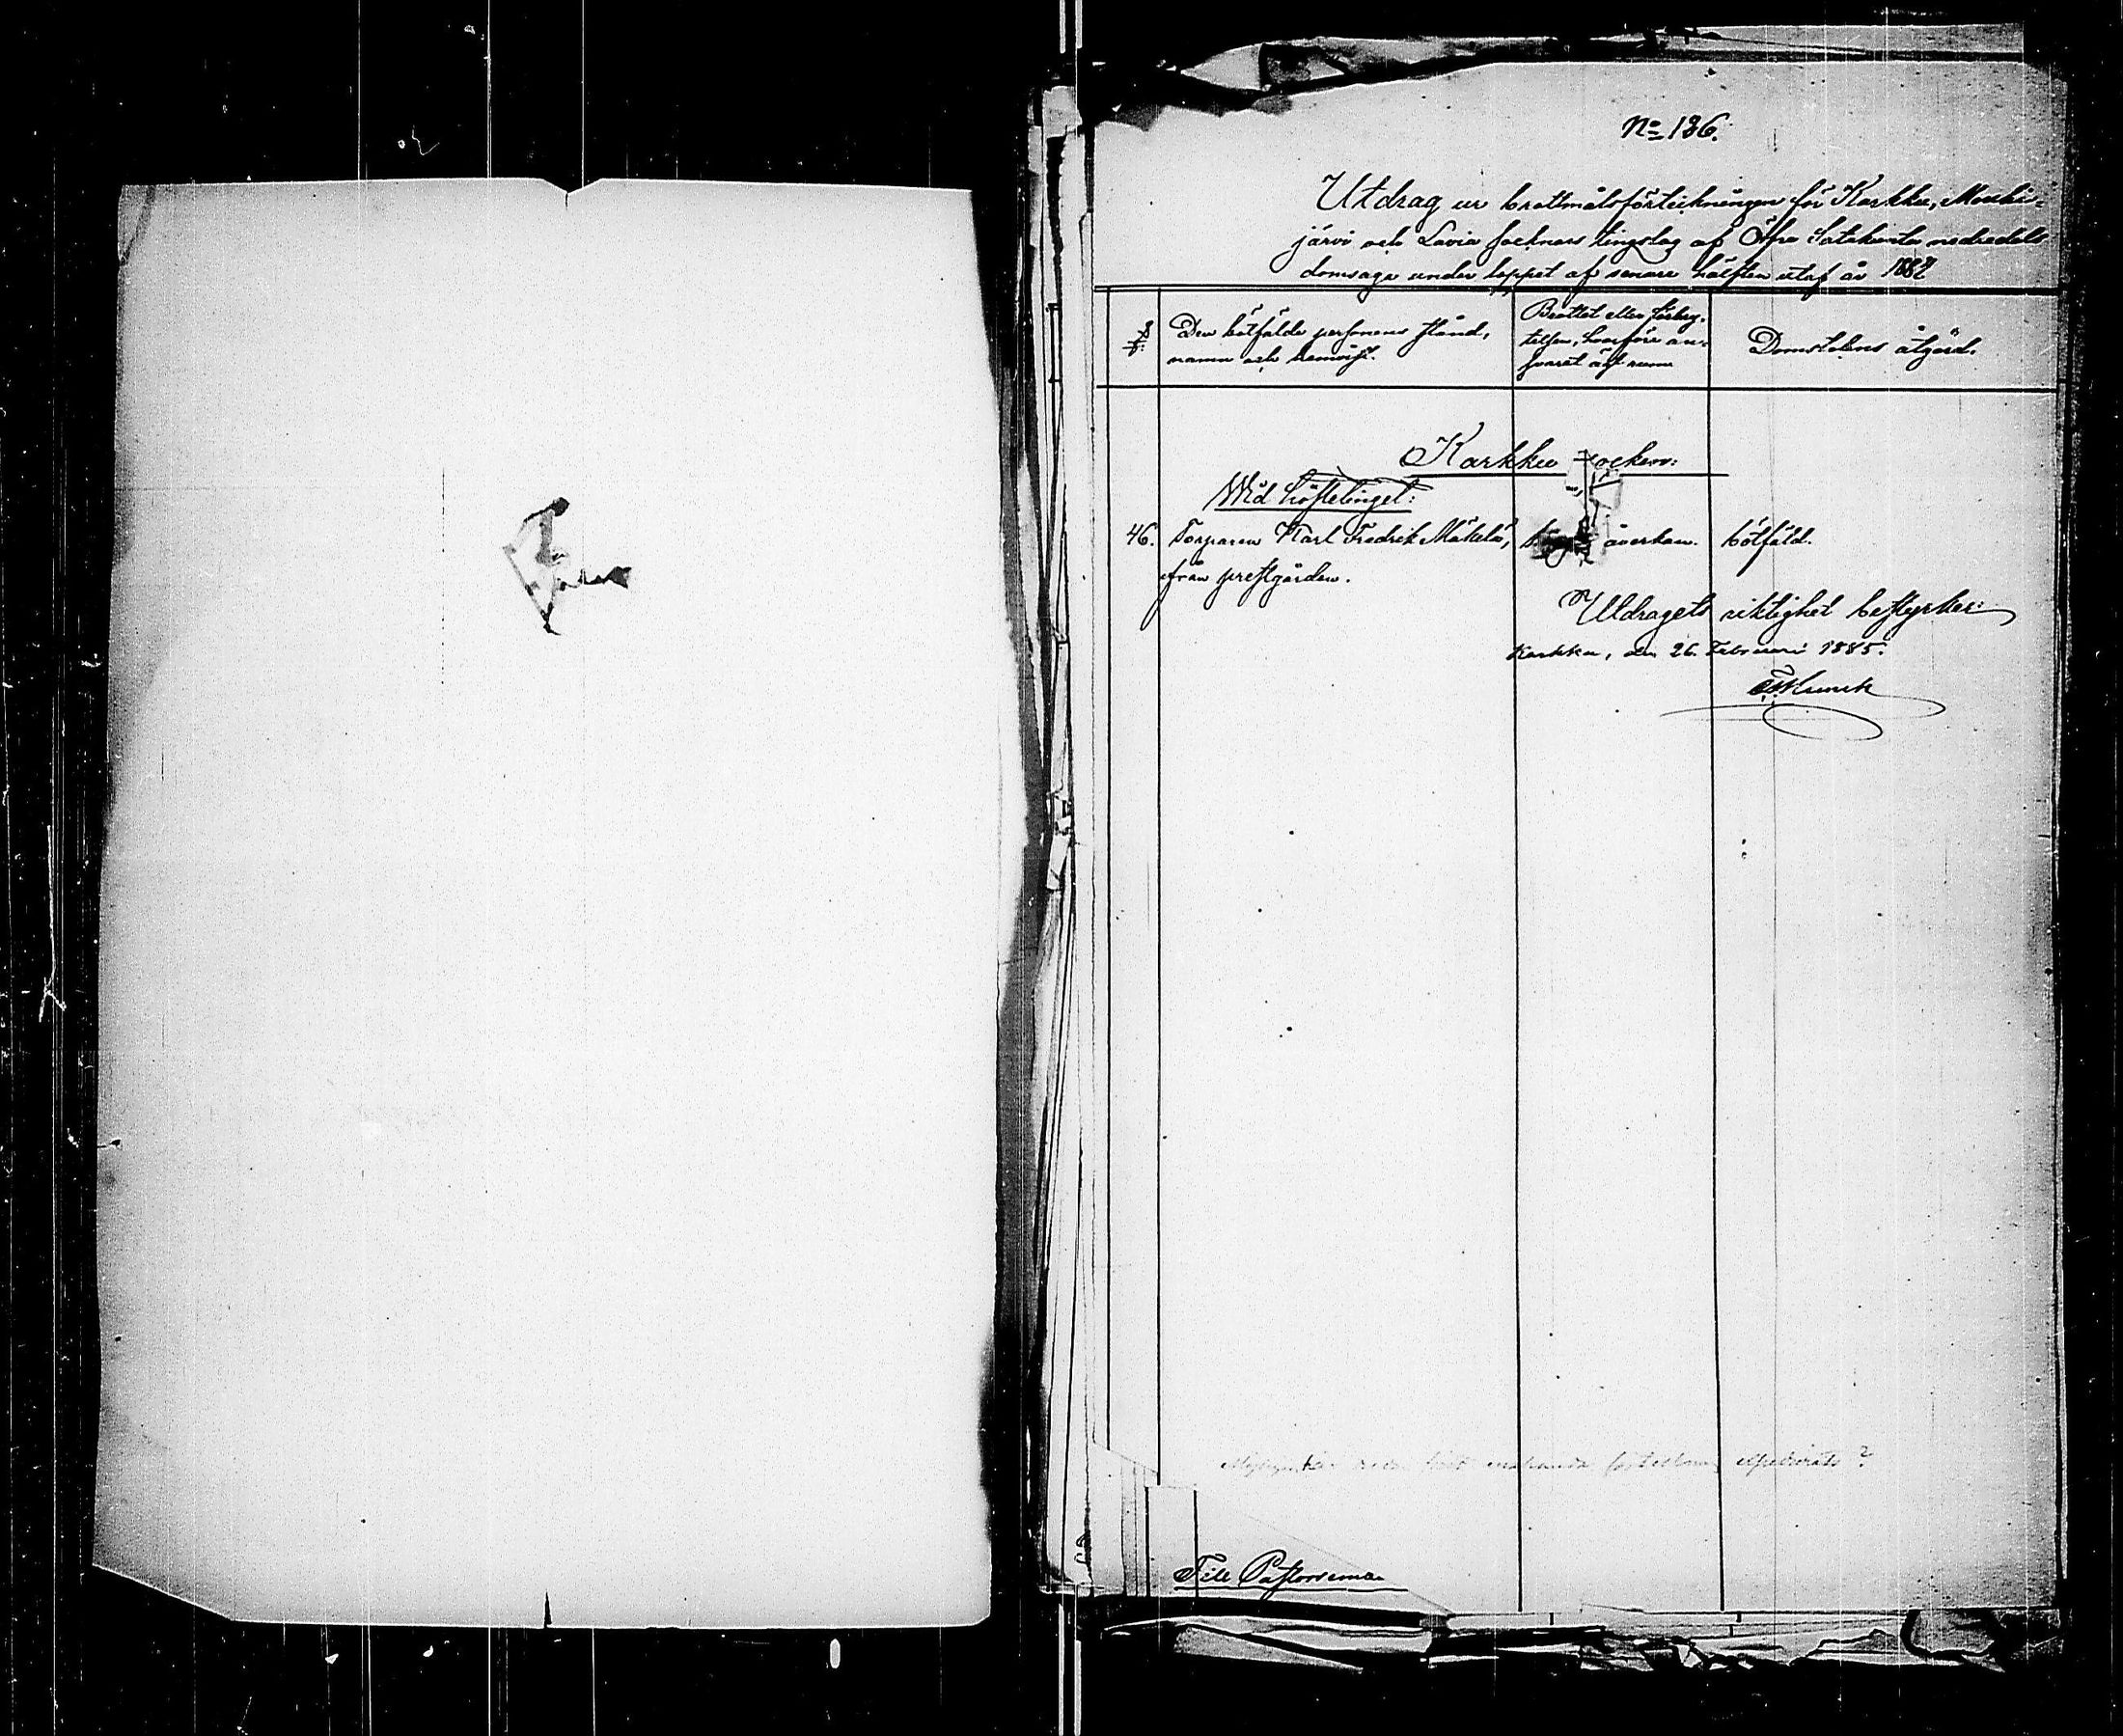 No 136.
Utdrag ur brottmålsförteckningen för Karkku, Mouhi-
järvi och Lavia socknars tingslag af Öfre Satakunta nedredels
domsaga under loppet af senare hälften utaf år 1884
Den bötfälde personens stånd,
namn och hemvist.
Brottet eller förbry-
telsen, hvarföre an-
svaret ägt rum
Domstolens åtgärd.
Karkku socken:
Wid hösttinget:
46. Torparen Karl Fredrik Mäkelä, åverkan. bötfäld.
från prestgården.
Utdragets riktighet bestyrker:
Karkku, den 26 Februari 1885.
Till Pastorsemb